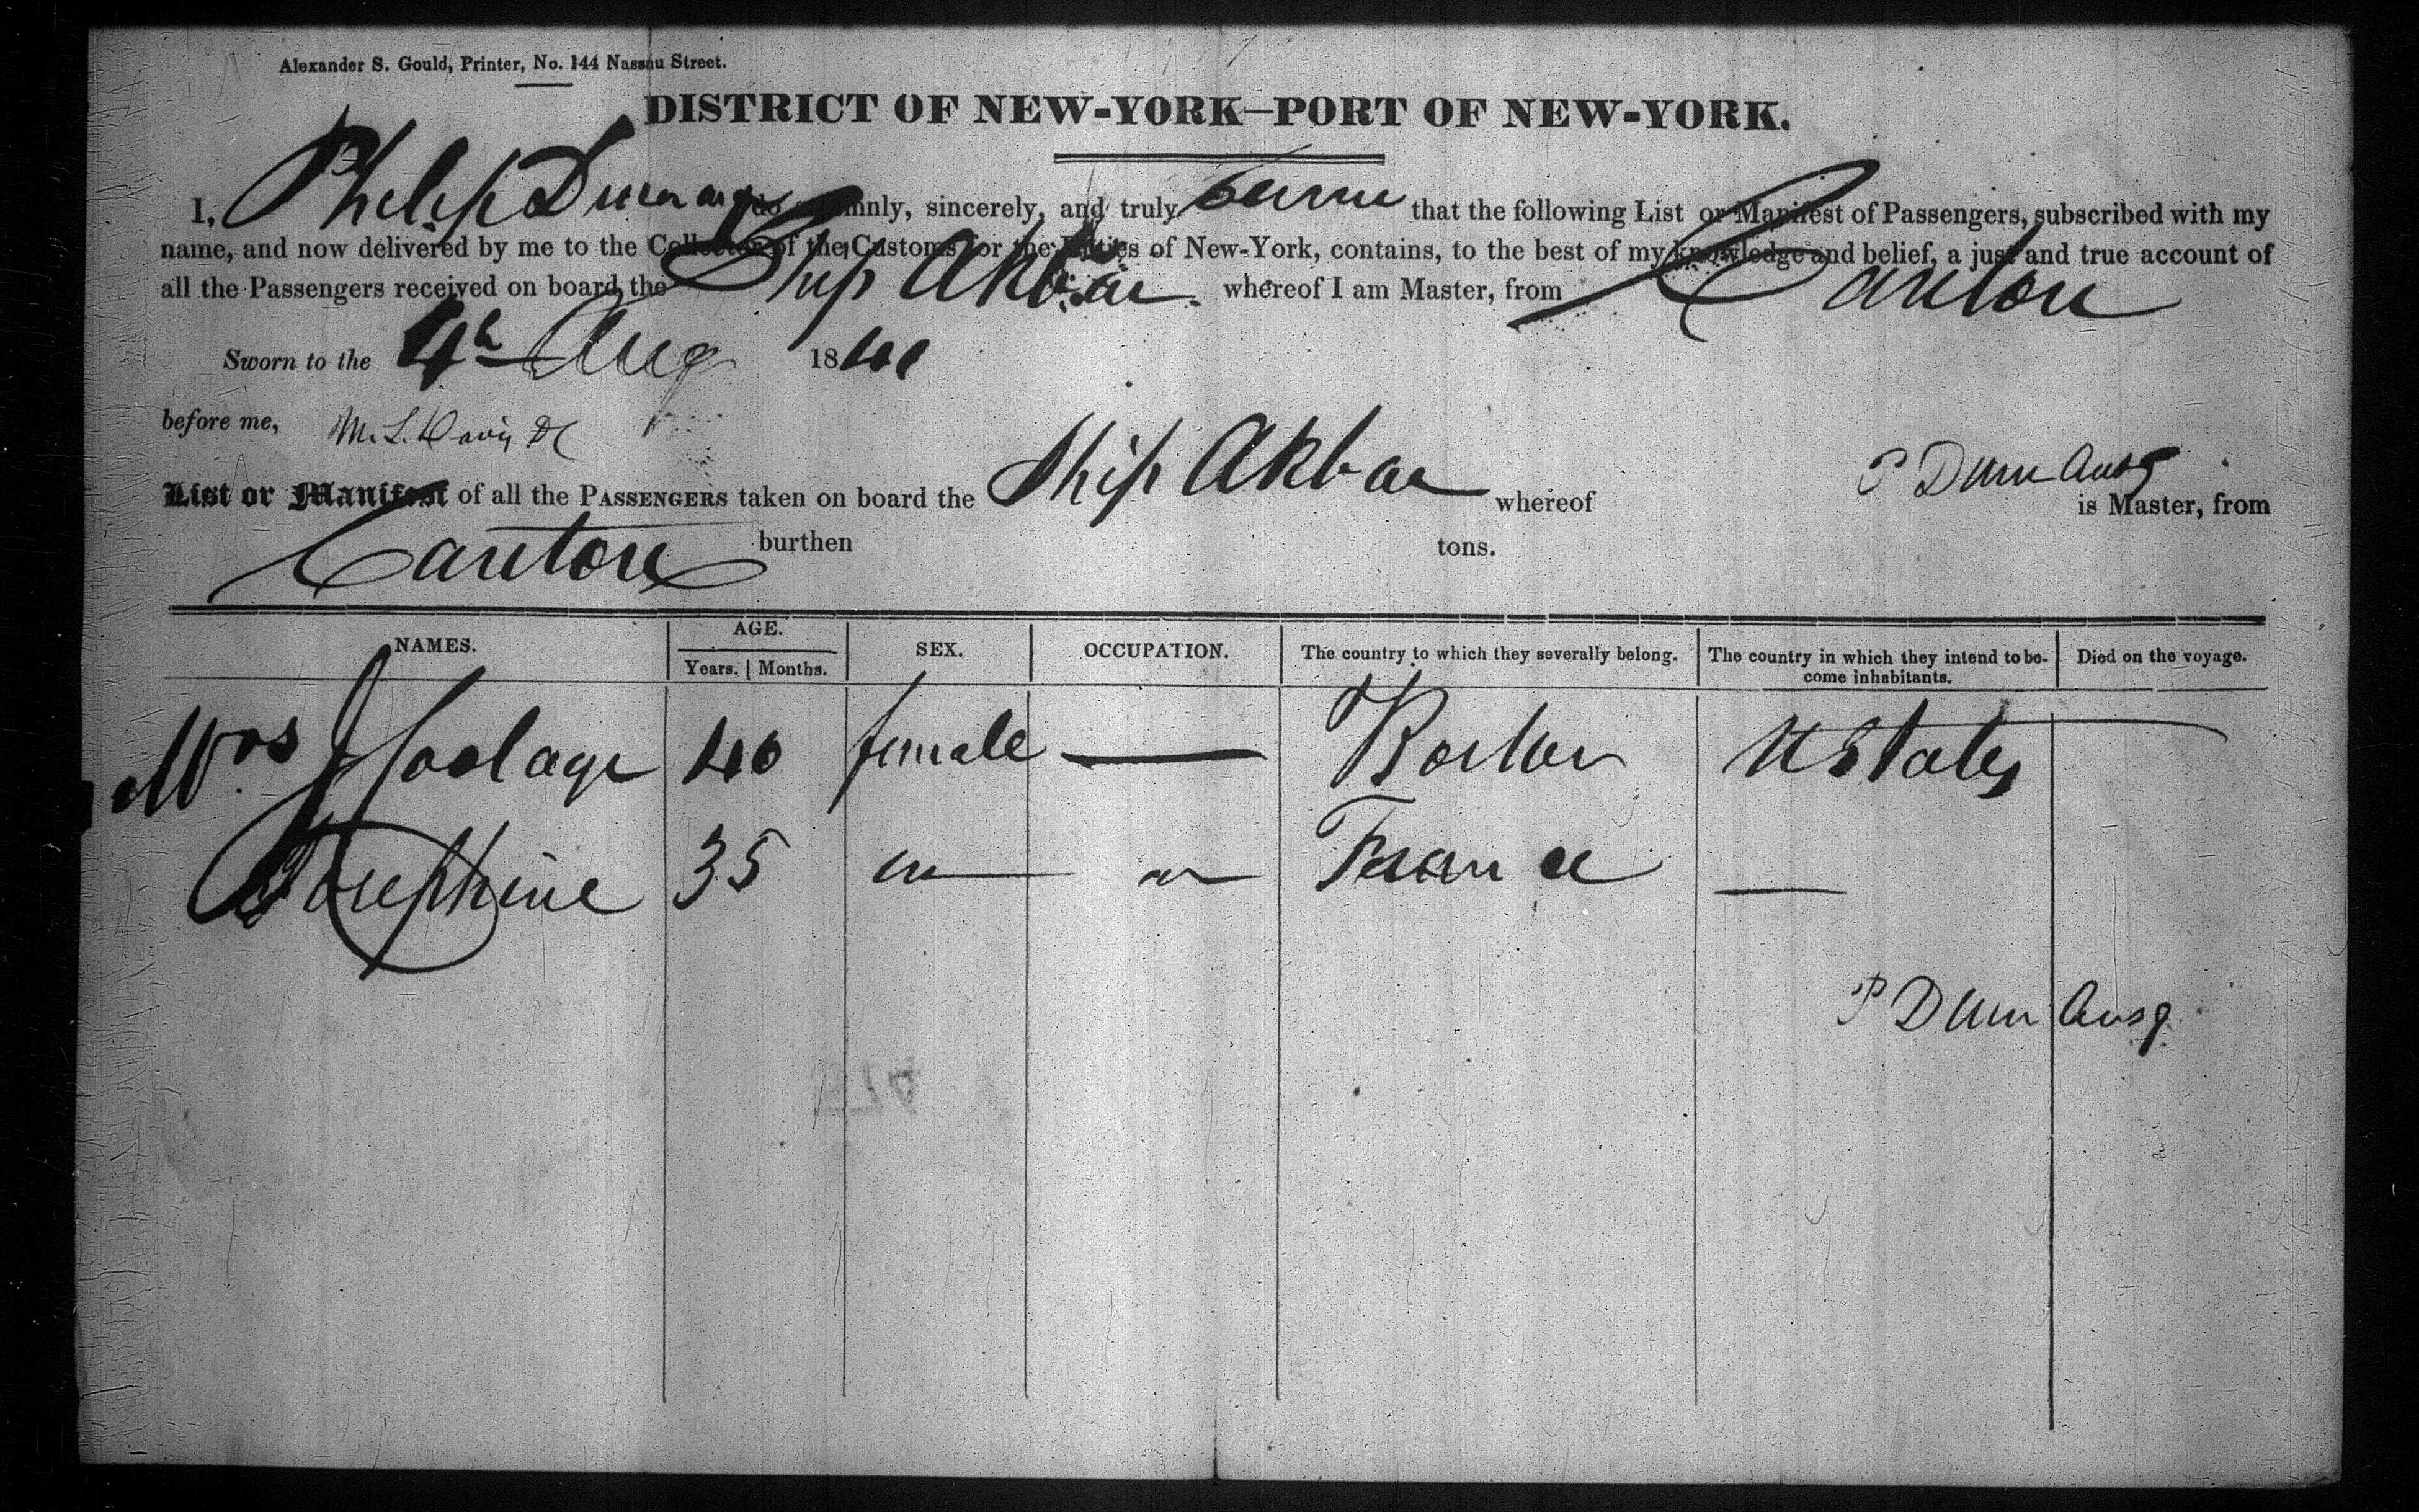 Alexander S. Gould, Printer, No. 144 Nassau Street.
DISTRICT OF NEW-YORK—PORT OF NEW-YORK.
I, Philip Dumaresq do solemnly, sincerely, and truly swear that the following List or Manifest of Passengers, subscribed with my
name, and now delivered by me to the Collector of the Customs for the District of New-York, contains, to the best of my knowledge and belief, a just and true account of
all the Passengers received on board the Ship Akbar whereof I am Master, from Canton
Sworn to the 4th Aug 1841
before me, M. L. Davis DC
List or Manifest of all the PASSENGERS taken on board the Ship Akbar whereof P Dumaresq is Master, from
Canton burthen tons.
NAMES. AGE. SEX. OCCUPATION. The country to which they severally belong. The country in which they intend to be- Died on the voyage.
Years. Months. come inhabitants.
Mrs 40 female — Boston U States
Josephine 35 " — " — France —
P Dumaresq